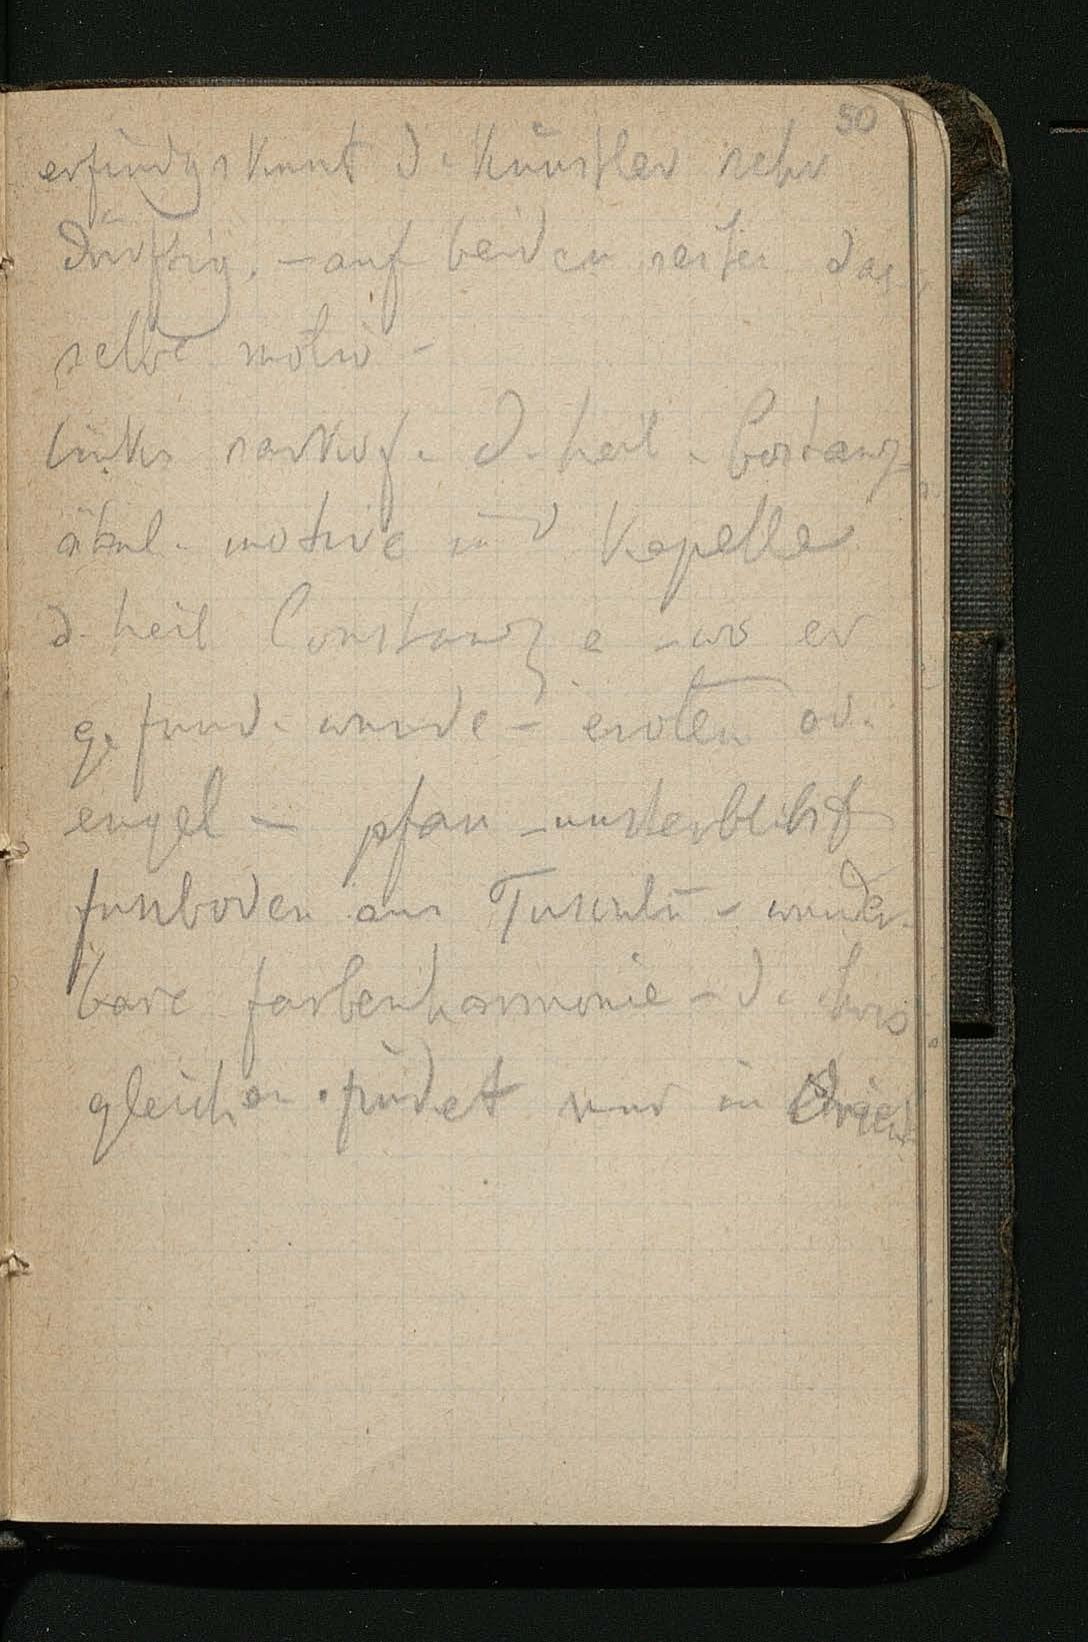 50
erfindgskunst d. Künstler sehr
dürftig. – auf beiden seiten das
selbe motiv –
links sarkof. d. heil. Costanz
ähnl. motive in d Kapelle
d. heil Constanze – wo er
gefund. wurde – eroten od.
engel – pfau – unsterblichkt
fussboden aus Tusculū – wunder-
bare farbenharmonie – d.
gleichen findet nur in Orient